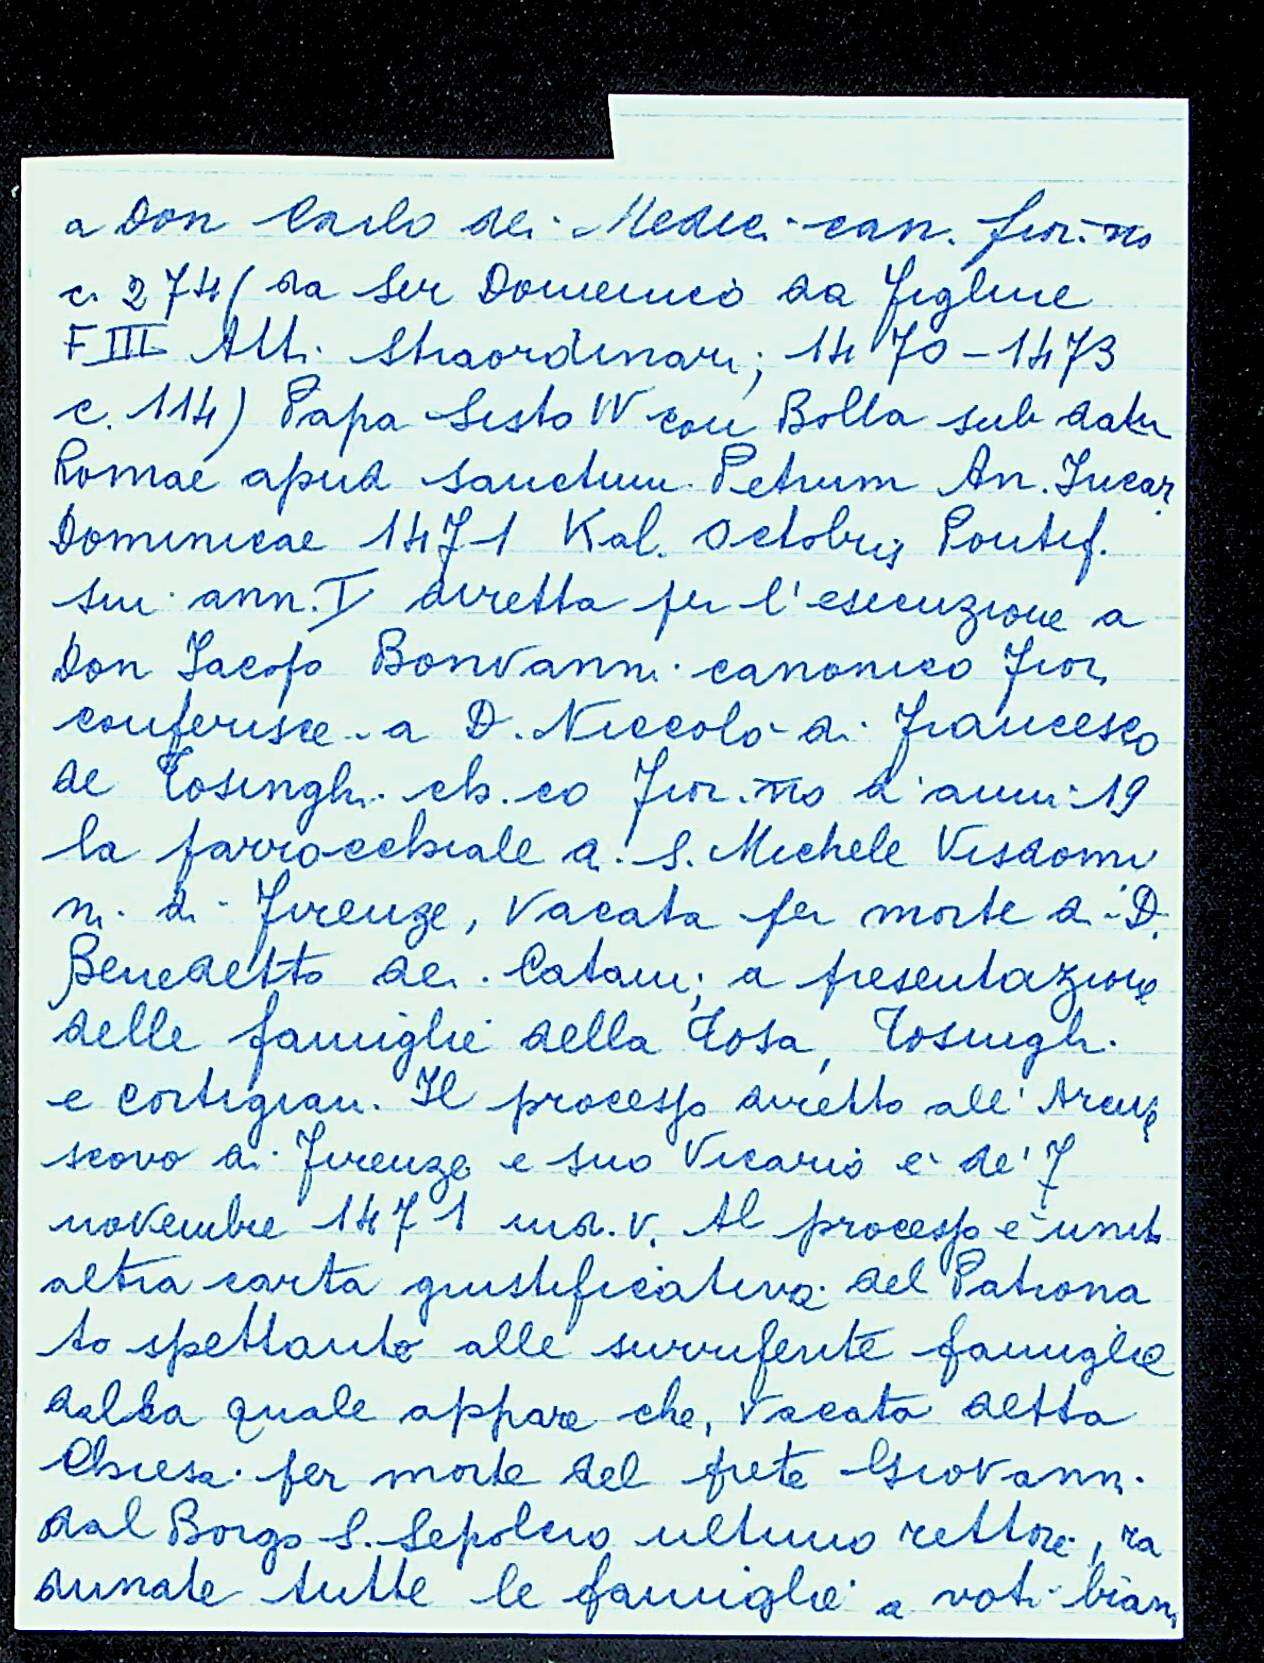 a Don Carlo dei Medici can. fior.no
c. 274 (da Ser Domenico da Figline
F III Atti straordinari; 1470-1473
c. 114) Papa Sisto IV con Bolla sub datu
Romae apud Sanctum Petrum An. Incar.
Dominicae 1471 Kal. Octobris Pontif.
sui ann. I diretta per l'esecuzione a
Don Iacopo Bonvanni canonico fior.
conferisce a D. Niccolò di Francesco
de Tosinghi ch.co Fior.no d'anni 19
la parrocchiale di S. Michele Visdomi
ni di Firenze, vacata per morte di D.
Benedetto dei Catani; a presentazione
delle famiglie della Tosa, Tosinghi
e Cortigiani. Il processo diretto all'Arcive
scovo di Firenze e suo Vicario è de' 7
novembre 1471 ind. V. Al processo è unita
altra carta giustificativa del Patrona
to spettante alle surriferite famiglie
dalla quale appare che, vacata detta
Chiesa per morte del prete Giovanni
dal Borgo S. Sepolcro ultimo rettore, ra
dunate tutte le famiglie a voti bian